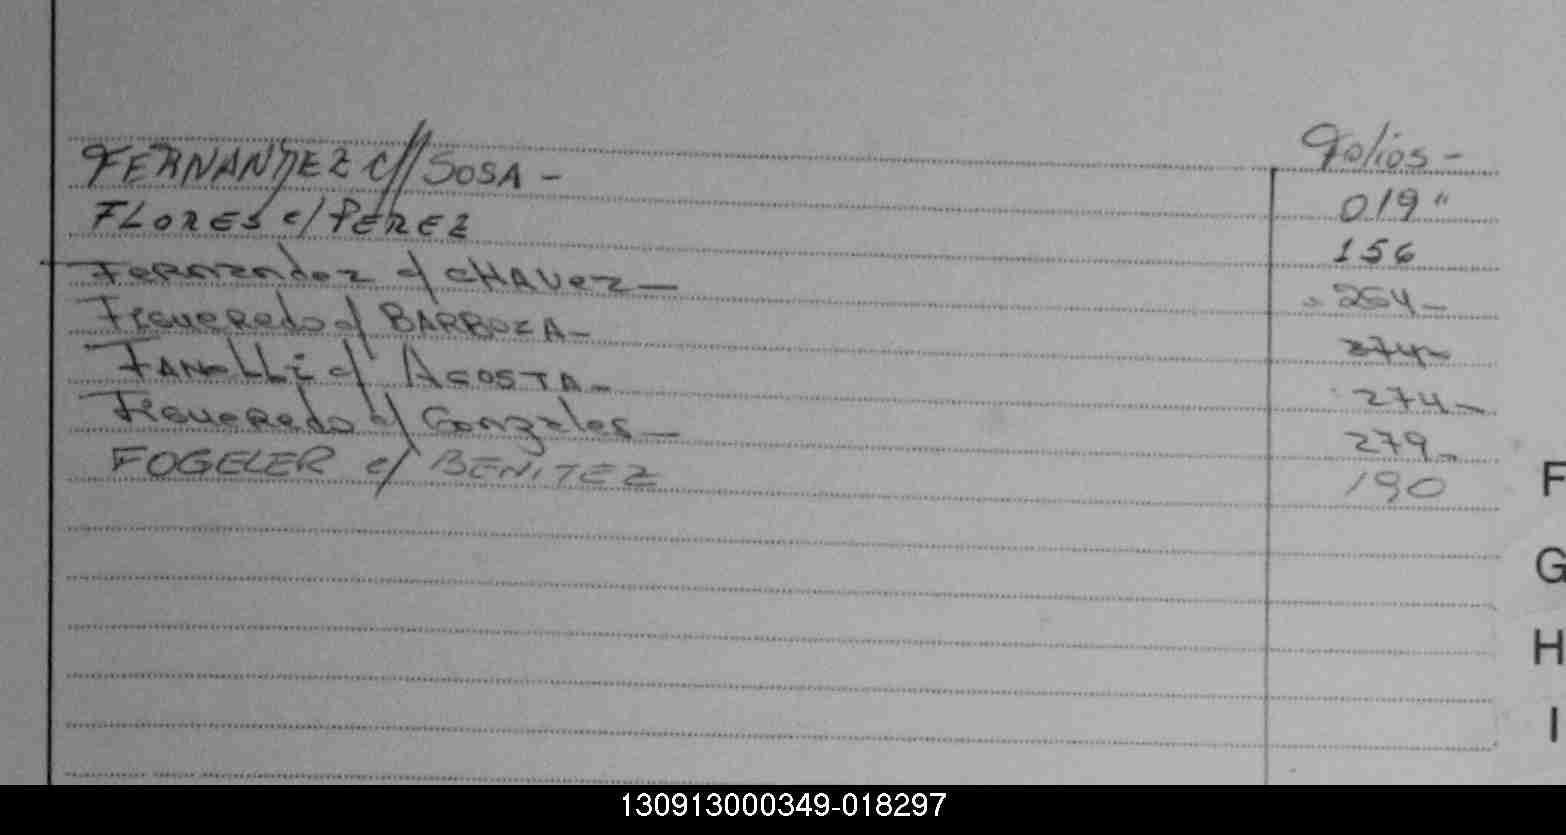 Folios -
FERNANDEZ c// SOSA - 019 "
FLORES c/ PEREZ 156
Fernandez c/ CHAVez - 264 -
Figueredo c/ BARBOZA - 274 -
FANeLLi c/ AGOSTA - 274 -
Figueredo c/ Gonzales - 279 -
FOGELER c/ BENITEZ 190
F
G
H
I
130913000349-018297